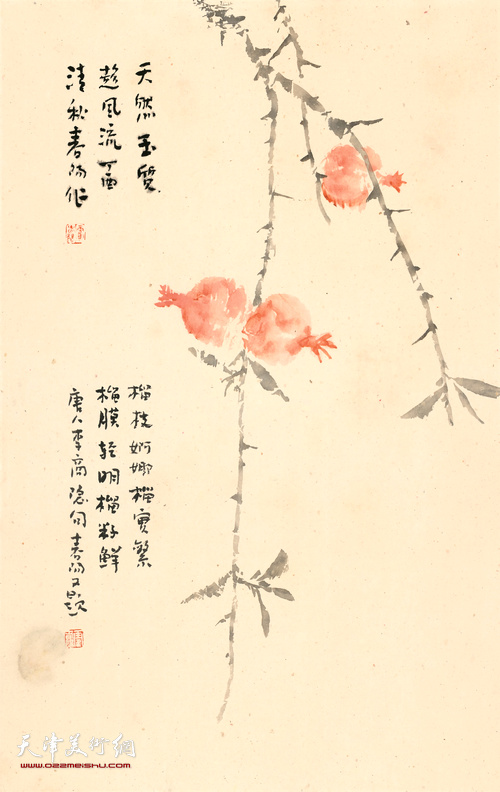 天然玉质
趁风流丁酉
清秋春阳作
榴枝婀娜榴实繁
榴膜轻明榴籽鲜
唐人李商隐句春阳又题
天津美术网
www.022meishu.com